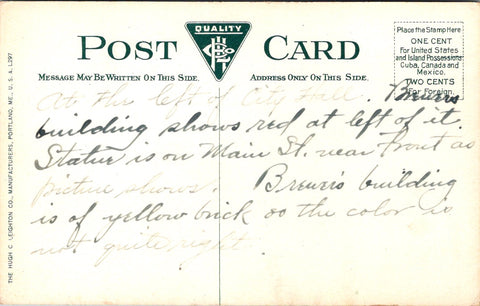 QUALITY
POST CARD
MESSAGE MAY BE WRITTEN ON THIS SIDE.
ADDRESS ONLY ON THIS SIDE.
Place the Stamp Here
ONE CENT
For United States
and Island Possessions
Cuba, Canada and
Mexico.
TWO CENTS
For Foreign.
THE HUGH C. LEIGHTON CO., MANUFACTURERS, PORTLAND, ME., U. S. A. L297
At the left of City Hall. Brewers
building shows red at left of it.
Statue is on Main St. near front as
picture shows. Brewer's building
is of yellow brick so the color is
not quite right.